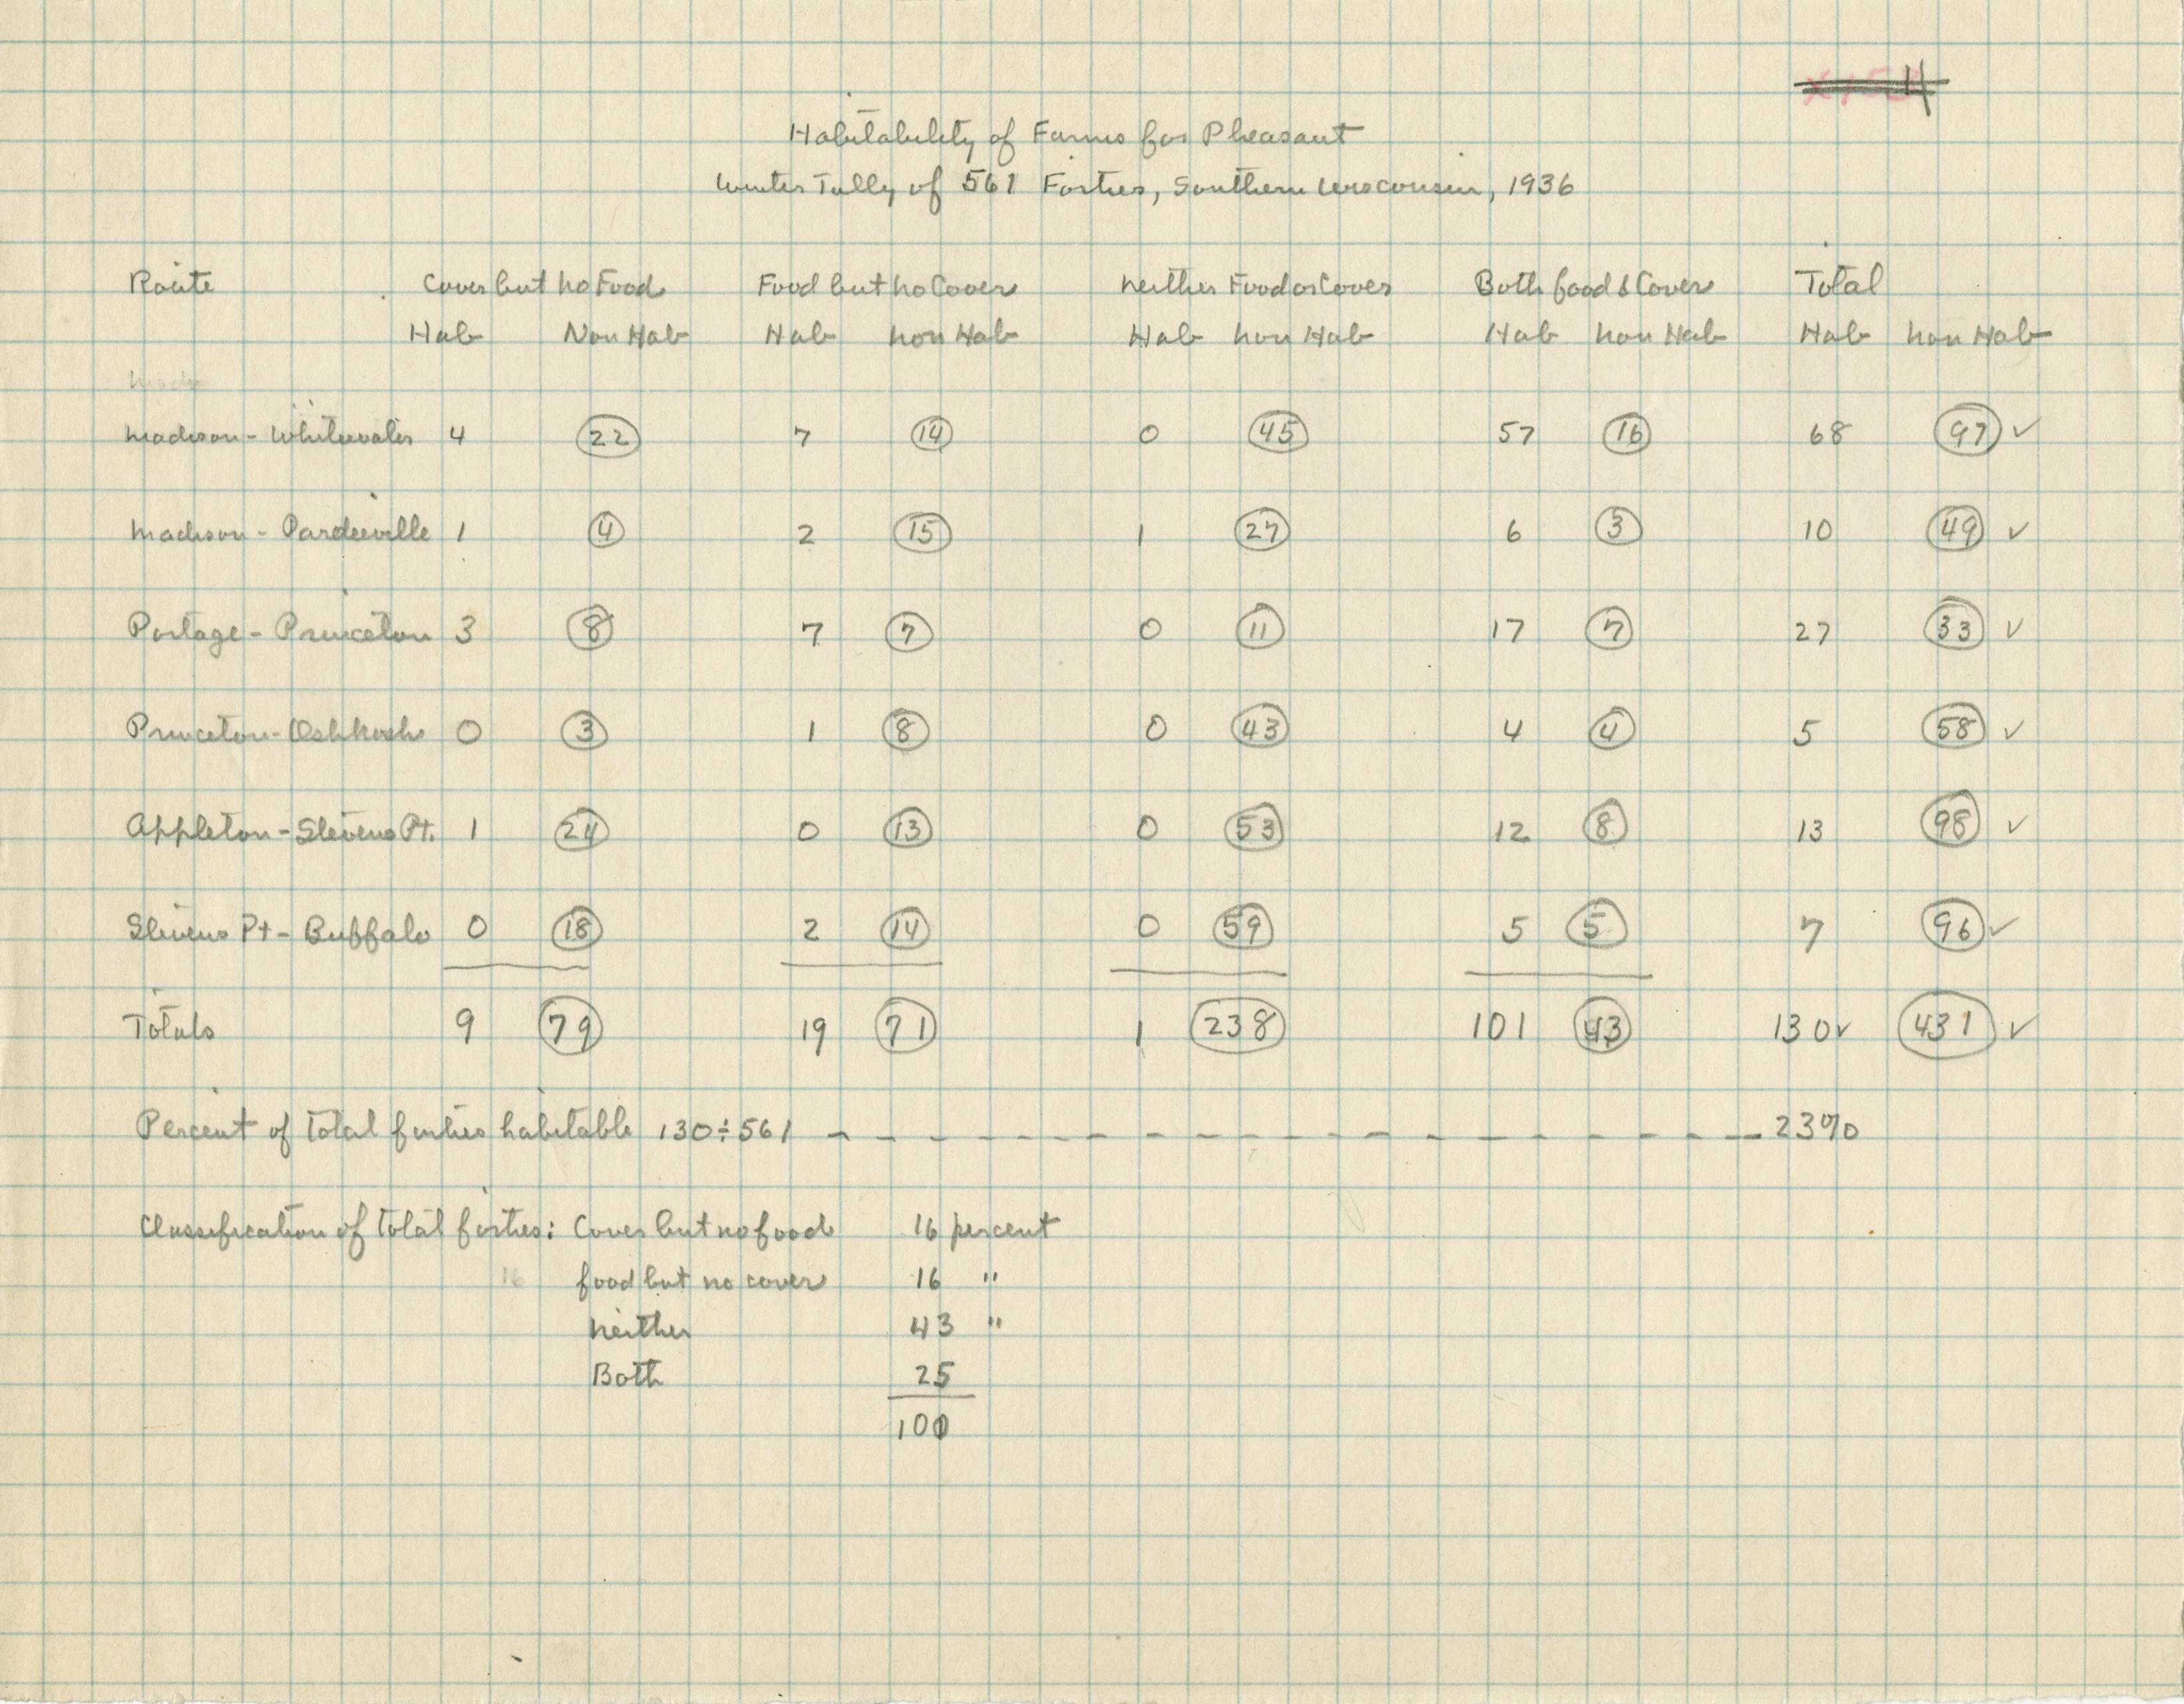 Habitability of Farms for Pheasant
Winter Tally of 561 Forties, Southern Wisconsin, 1936
Route Cover but no Food Food but no Cover Neither Food or Cover Both food & Cover Total
Hab Non Hab Hab non Hab Hab non Hab Hab non Hab Hab non Hab
Madison - Whitewater 4 22 7 14 0 45 57 16 68 97 ✓
Madison - Pardeeville 1 4 2 15 1 27 6 3 10 49 ✓
Portage - Princeton 3 8 7 7 0 11 17 7 27 33 ✓
Princeton - Oshkosh 0 3 1 8 0 43 4 4 5 58 ✓
Appleton - Stevens Pt. 1 24 0 13 0 53 12 8 13 98 ✓
Stevens Pt - Buffalo 0 18 2 14 0 59 5 5 7 96 ✓
Totals 9 79 19 71 1 238 101 43 130 ✓ 431 ✓
Percent of total forties habitable 130 ÷ 561 - - - - - - - - - - - - - - - - 23%
Classification of total forties: Cover but no food 16 percent
16 food but no cover 16 "
Neither 43 "
Both 25
100